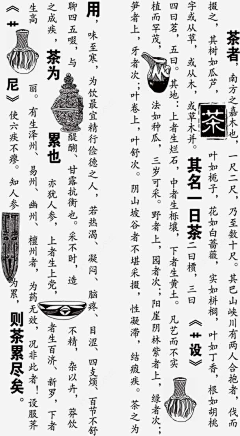 茶者，南方之嘉木也，一尺二尺，乃至数十尺。其巴山峡川有两人合抱者，伐而
掇之，其树如瓜芦，叶如栀子，花如白蔷薇，实如栟榈，叶如丁香，根如胡桃
茶
字或从草，或从木，或草木并。其名一曰茶二曰槚，三曰《艹设》
四曰茗，五曰。其地：上者生烂石，中者生栎壤，下者生黄土。凡艺而不实
植而罕茂，法如种瓜，三岁可采。野者上，园者次；阳崖阴林紫者上，绿者次；
笋者上，牙者次；叶卷上，叶舒次。阴山坡谷者不堪采掇，性凝滞，结瘕疾。茶之为
用，味至寒，为饮最宜精行俭德之人，若热渴、凝闷、脑疼、目涩、四支烦、百节不舒
聊四五啜，与醍醐、甘露抗衡也。采不时，造不精，杂以卉，莽饮
之成疾，茶为累也亦犹人参。上者生上党，者生百济，新罗，下者
生高丽。有生泽州、易州、幽州、檀州者，为药无效，况非此者！设服荠
《艹尼》使六疾不瘳。知人参为累，则茶累尽矣。